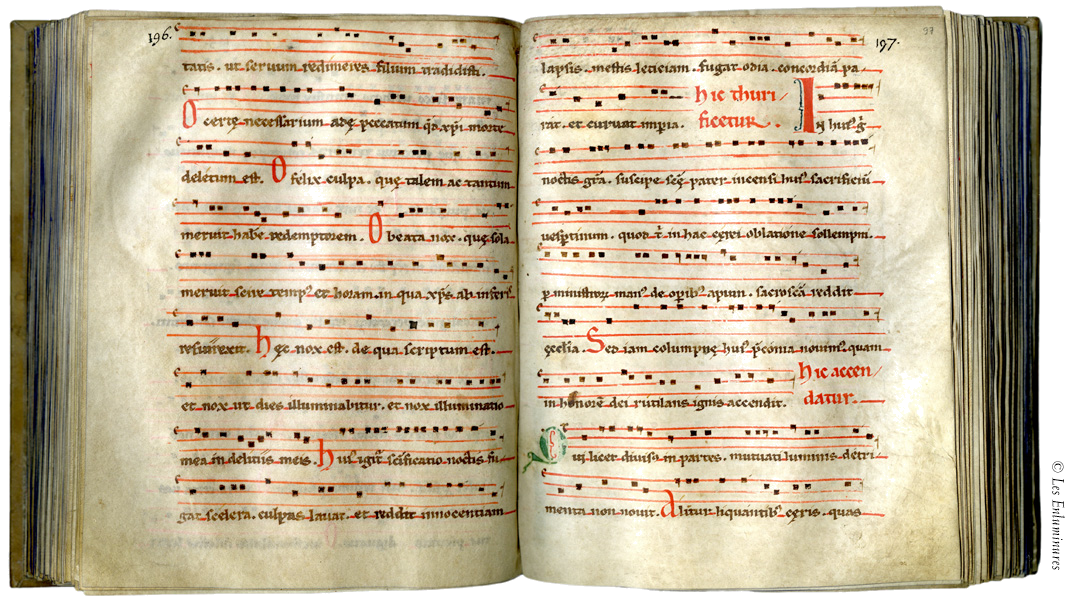 196.
tatis. ut seruum redimeres filium tradidisti.
O certę necessarium adę peccatum qđ xp̄i morte
deletum est. O felix culpa. quę talem ac tantum
meruit habe redemptorem. O beata nox. quę sola
meruit scire temp᷒ et horam. in qua xp̄s ab inferis
resurrexit. hęc nox est. de qua scriptum est.
et nox ut dies illuminabitur. et nox illuminatio
mea in deliciis meis. hui᷒ igit᷑ sc̄ificatio noctis fu
gat scelera. culpas lauat. et reddit innocentiam
97
197.
lapsis. mestis leticiam. fugat odia. concordiā pa
rat. et curuat imperia. hic thuri
ficetur. In hui᷒ g̊
noctis gr̄a. suscipe sc̄ę pater incensi hui᷒ sacrificiū
uesp̱tinum. quod t̄ in hac cęrei oblatione sollempni.
p̱ ministror̄ man᷒ de op̱ib᷒ apum. sacroscā̄ reddit
ęcclia. Sed iam columpnę hui᷒ p̄conia nouim᷒. quam
in honorē dei rutilans ignis accendit. hic accen
datur.
Qui licet diuisus in partes. mutuati luminis detri
menta non nouit. Alitur liquantib᷒ cęris. quas
© Les Enluminures